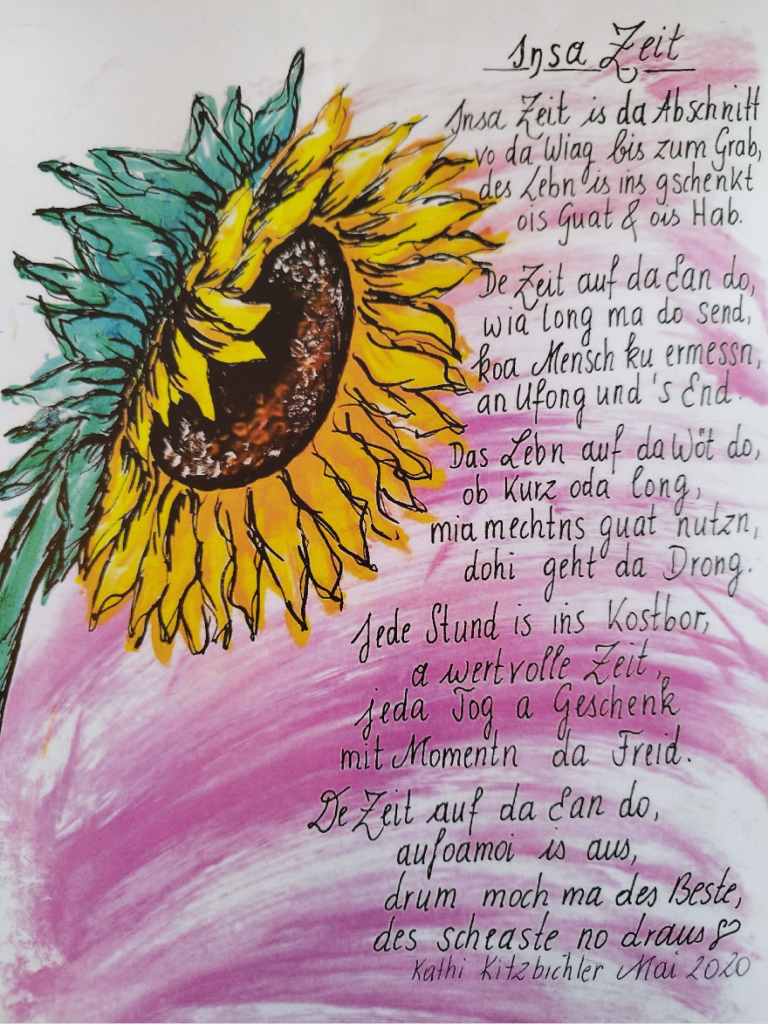 Insa Zeit
Insa Zeit is da Abschnitt
vo da Wiag bis zum Grab,
des Lebn is ins gschenkt
ois Guat & ois Hab.
De Zeit auf da Ean do,
wia long ma do send,
koa Mensch ku ermessn,
an Ufong und 's End.
Das Lebn auf da Wöt do,
ob kurz oda long,
mia mechtns guat nutzn,
dohi geht da Drong.
Jede Stund is ins kostbor,
a wertvolle Zeit,
jeda Tog a Geschenk
mit Momentn da Freid.
De Zeit auf da Ean do,
aufoamoi is aus,
drum moch ma des Beste,
des scheaste no draus
Kathi Kitzbichler Mai 2020